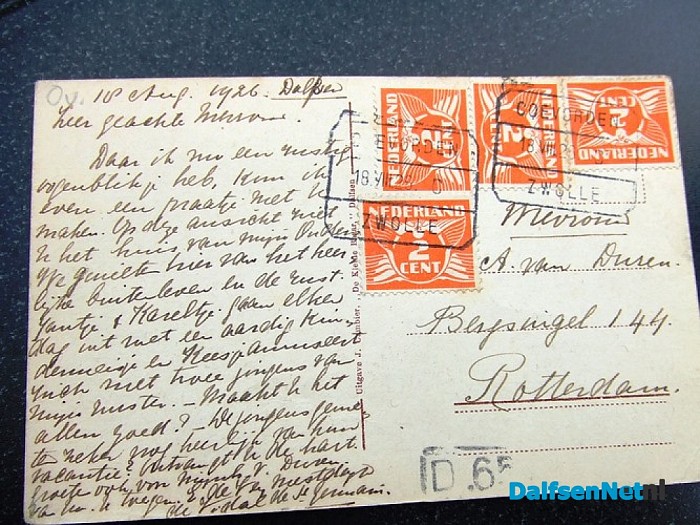 18 Aug. 1926. Dalfsen
Zeer geachte Mevrouw.
Daar ik nu een rustig
oogenblikje heb, kom ik
even een praatje met U
maken. Op deze ansicht ziet
U het huis van mijn Ouders
We genieten hier van het heer-
lijke buitenleven en de rust.
Jantje & Kareltje gaan elken
dag uit met een aardig kin-
dermeisje en Kees amuseert
zich met twee jongens van
mijn zuster. - Maakt U het
allen goed? - De jongens genie-
ten zeker nog heerlijk van hun
vacantie? Ontvangt U de hart.
groeten ook van
Uitgave J. De Kleine Bazar, Dalfsen
NEDERLAND
2
CENT
NEDERLAND
2
NEDERLAND
2
CENT
NEDERLAND
2
CENT
COEVORDEN
18.VIII.26 C
ZWOLLE
COEVORDEN
18 VIII 26
ZWOLLE
Mevrouw
A. van Duren.
Bergsingel 144.
Rotterdam.
D.65
DalfsenNet.nl